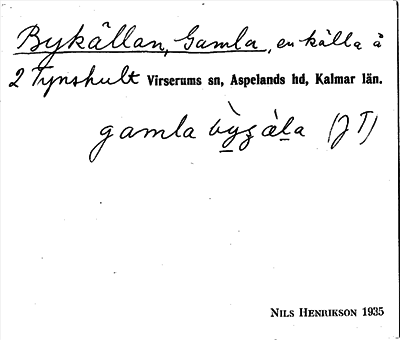 Bykällan, Gamla, en källa å
2 Tynshult Virserums sn, Aspelands hd, Kalmar län.
gamla (JT)
NILS HENRIKSON 1935